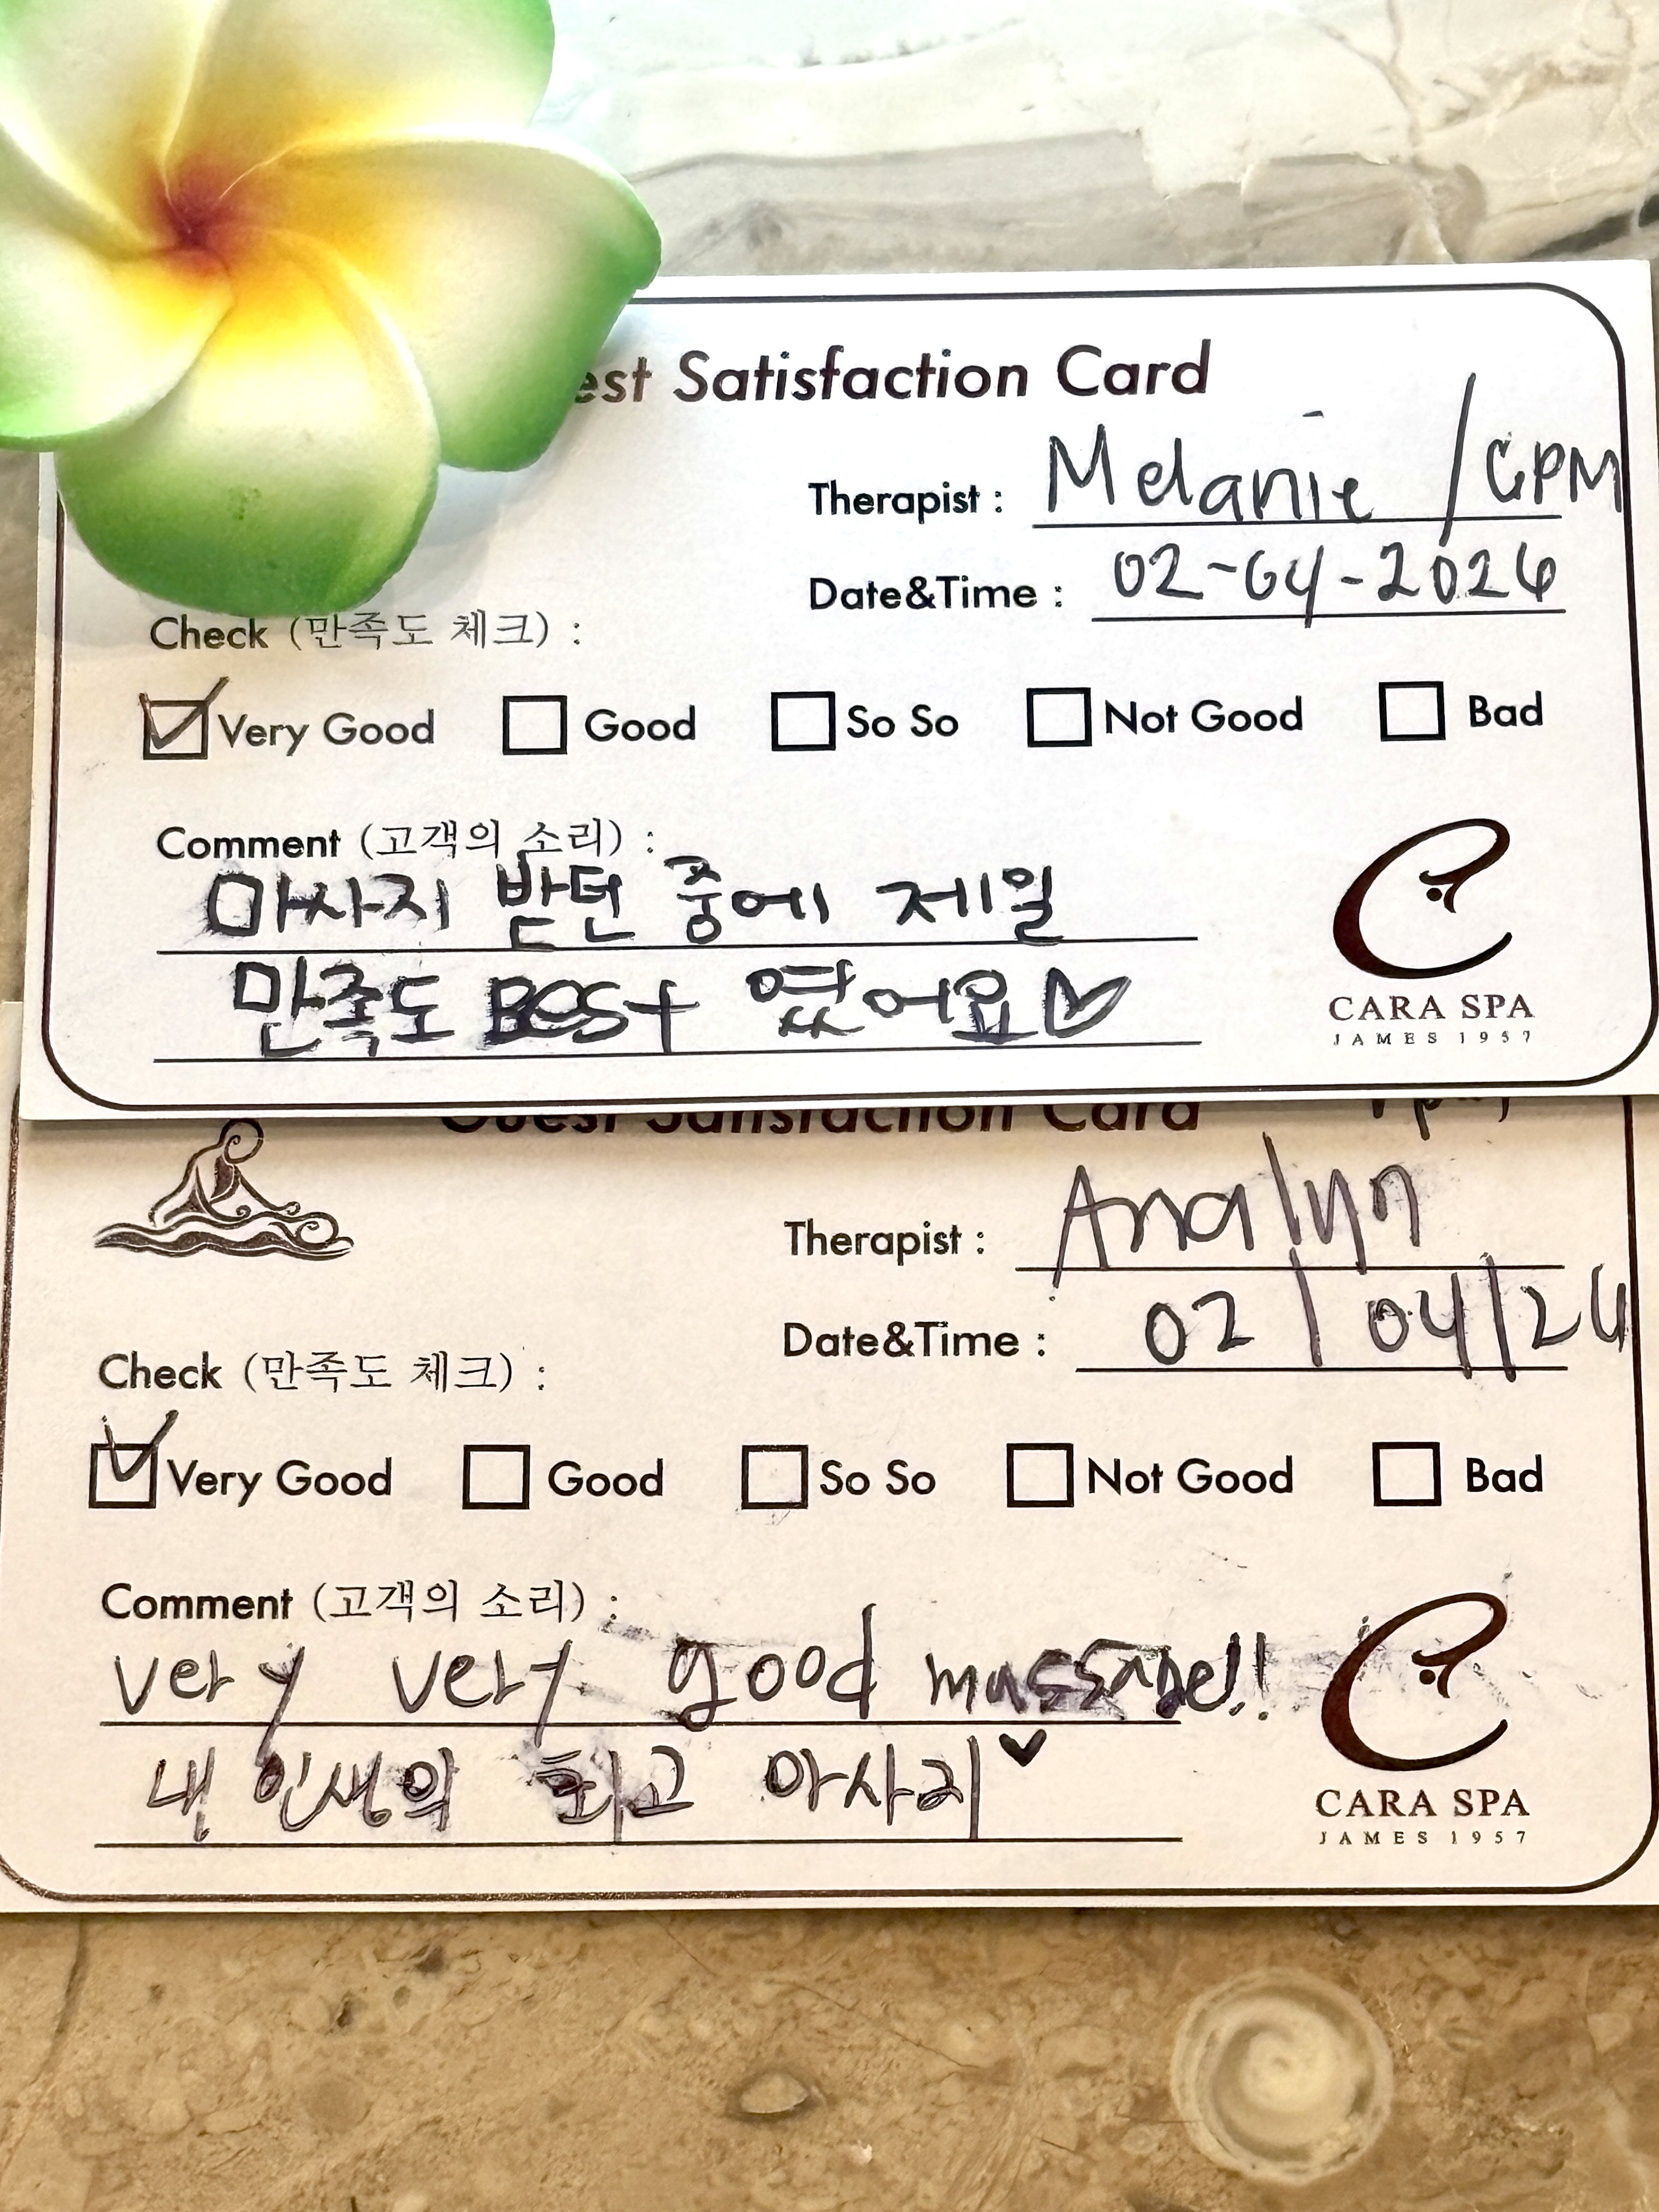 est Satisfaction Card
Therapist : Melanie / GPM
Date&Time : 02-04-2026
Check (만족도 체크) :
Very Good Good So So Not Good Bad
Comment (고객의 소리) :
마사지 받던 중에 제일
만족도 BEST 였어요♡
CARA SPA
JAMES 1957
Guest Satisfaction Card
Therapist : Analyn
Date&Time : 02/04/26
Check (만족도 체크) :
Very Good Good So So Not Good Bad
Comment (고객의 소리) :
very very good massage!!
내 인생의 최고 마사지♥
CARA SPA
JAMES 1957